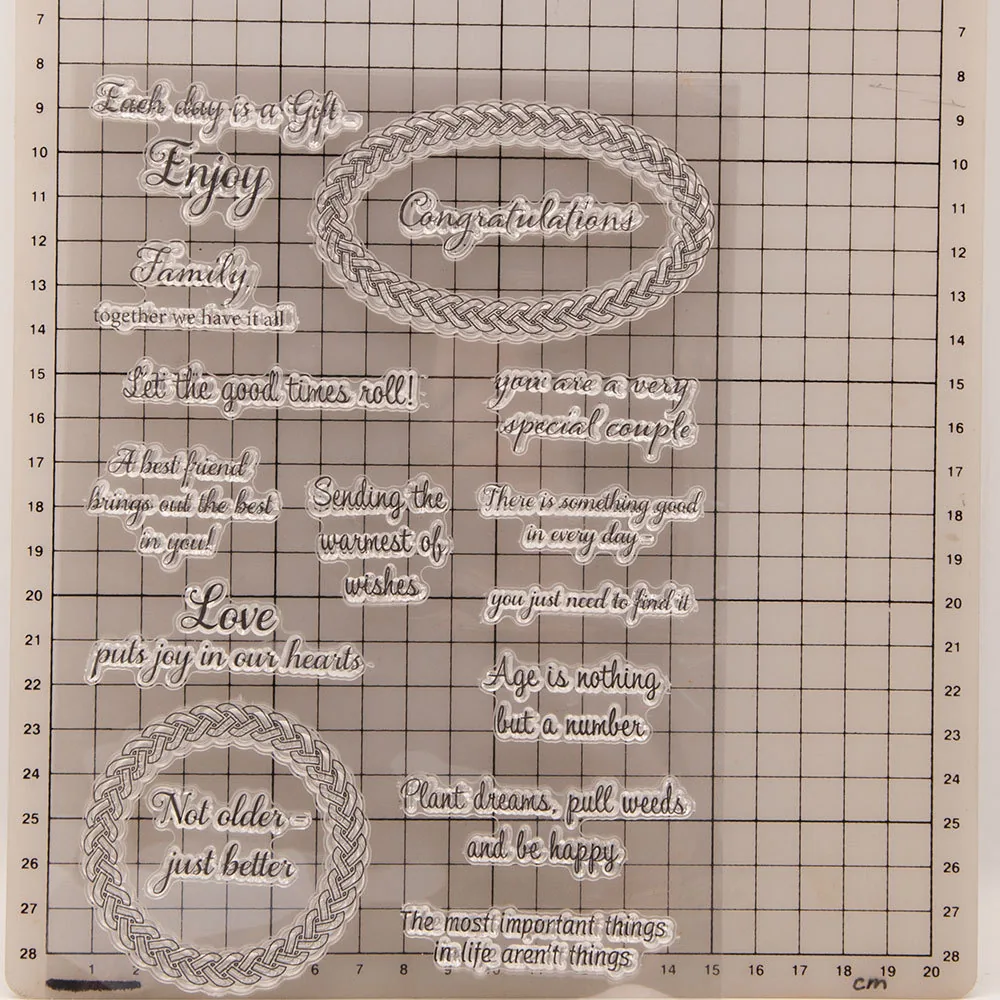 Each day is a Gift -
Enjoy
Congratulations
Family,
together we have it all
Let the good times roll!
you are a very
special couple
A best friend
brings out the best
in you!
Sending the
warmest of
wishes
There is something good
in every day-
you just need to find it
Love
puts joy in our hearts
Age is nothing
but a number
Not older -
just better
Plant dreams, pull weeds
and be happy
The most important things
in life aren't things
7 7
8 8
9 9
10 10
11 11
12 12
13 13
14 14
15 15
16 16
17 17
18 18
19 19
20 20
21 21
22 22
23 23
24 24
25 25
26 26
27 27
28 28
1 2 6 7 8 9 14 15 16 17 18 19 20
cm